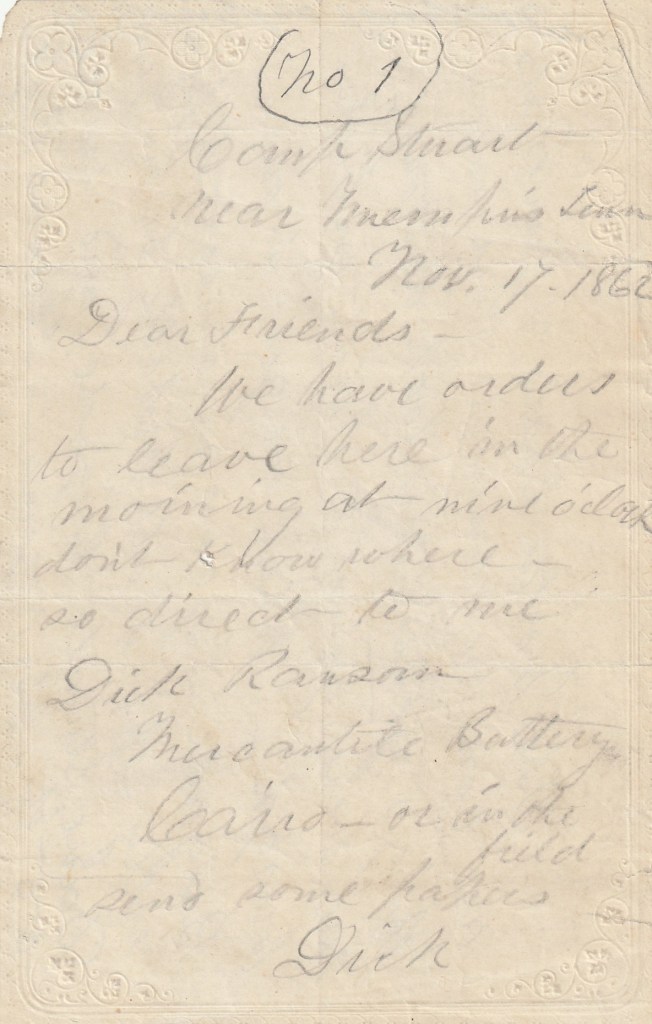 No 1
Camp Stuart
near Memphis Tenn
Nov. 17 - 1862
Dear Friends -
We have orders
to leave here in the
morning at nine o'clock
don't know where -
so direct to me
Dick Ransom
Mercantile Battery
Cairo - or in the
field
send some papers
Dick